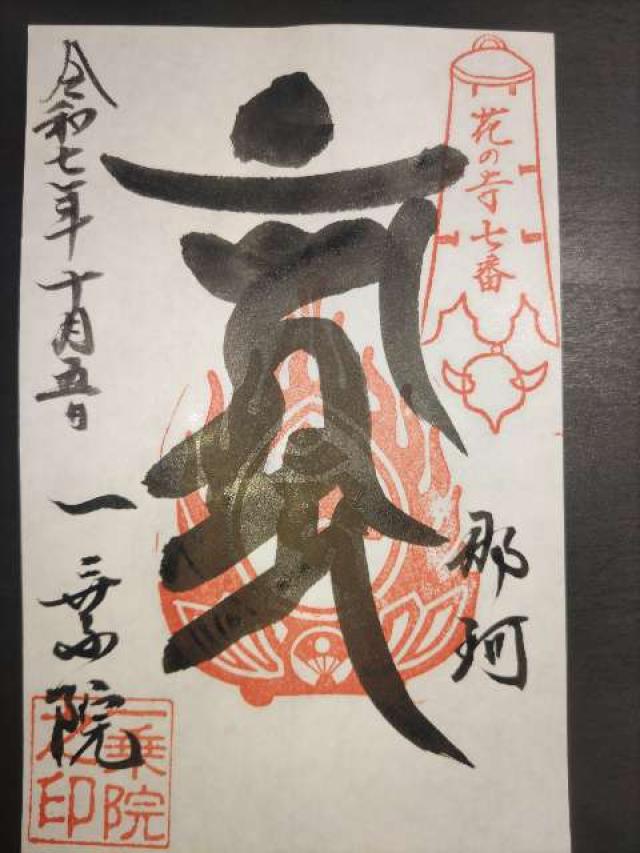 花の寺七番
那珂
令和七年十月五日
一乗院
一乗院
印